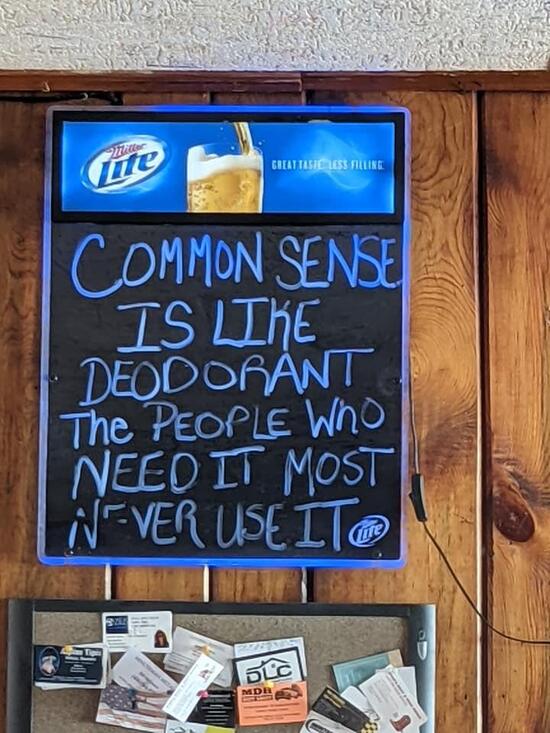 Miller
Lite
GREAT TASTE. LESS FILLING.
COMMON SENSE
IS LIKE
DEODORANT
The PEOPLE WHO
NEED IT MOST
NEVER USE IT
Lite
DLC
MDH